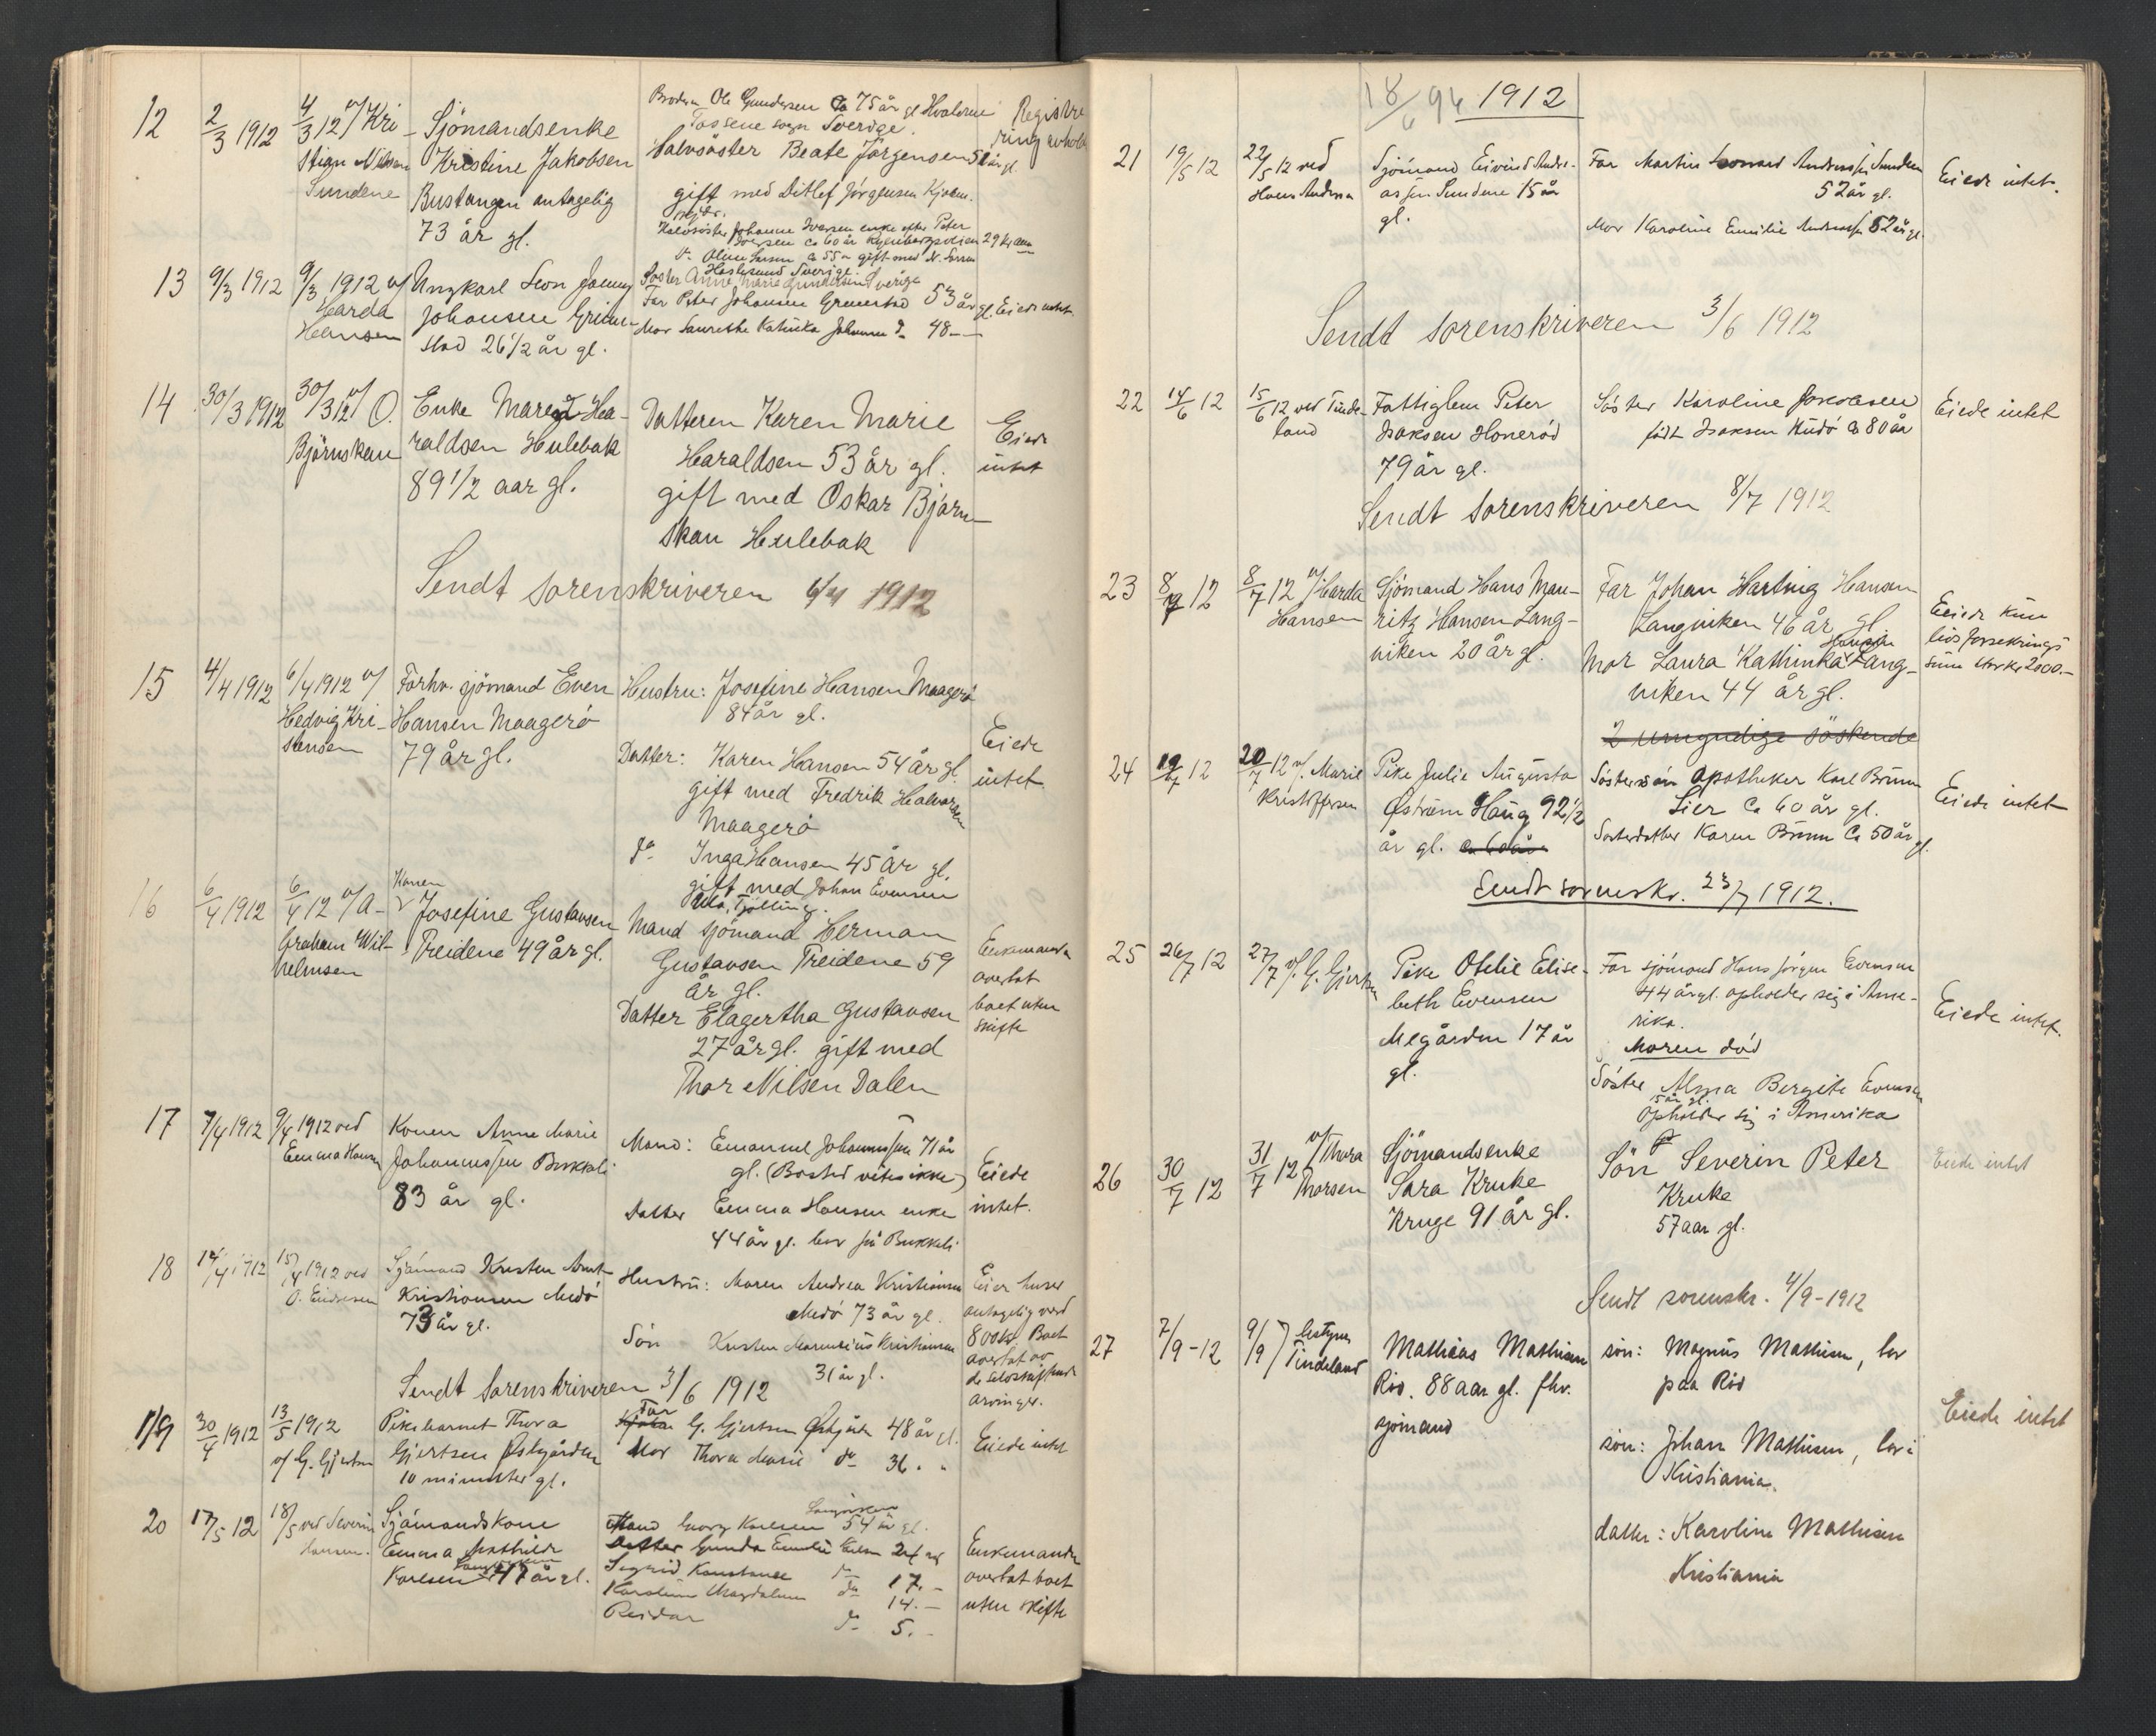 12 2/3 1912 4/3 12 v/ Kri-
stian Nilsen
Sundene
Sjömandsenke
Kristine Jakobsen
Bustangen antagelig
73 år gl.
Broderen Ole Gundersen Ca 75 år gl
Tossene sogn Sverige.
Halvsöster Beate Jörgensen 51 år gl.
gift med Ditlef Jörgensen
Halvsöster Johanne Iversen enke efter Peter
Iversen ca 60 år
do Oline Larsen ca 55 år gift med N. Larsen
Sverige.
Söster Anne Marie Gundersen Sverige
Registre
ring avhold
13 9/3 1912 9/3 1912 v/
Harda
Hansen
Ungkarl Leon
Johansen Grim-
stad 26 1/2 år gl.
Far Peter Johansen Grimestad 53 år gl.
Mor Laurethe Katinka Johansen do 48 —
Eiede intet
14 30/3 1912 30/3 12 v/ O.
Björnskau
Enke Maren Ha-
raldsen Hulebak
89 1/2 aar gl.
Datteren Karen Marie
Haraldsen 53 år gl.
gift med Oskar Björn-
skau Hulebak
Eiede
intet
Sendt sorenskriveren 6/4 1912
15 4/4 1912 6/4 1912 v/
Hedvig Kri-
stensen
Forhv. sjömand Even
Hansen Maagerö
79 år gl.
Hustru: Josefine Hansen Maagerö
84 år gl.
Datter: Karen Hansen 54 år gl.
gift med Fredrik Halvorsen
Maagerö
do Inga Hansen 45 år gl.
gift med Johan Evensen
Ula, Tjölling.
Eiede
intet
16 6/4 1912 6/4 12 v/ A-
braham Wil-
helmsen
Konen
Josefine Gustavsen
Treidene 49 år gl.
Mand sjömand Herman
Gustavsen Treidene 59
år gl.
Datter Elagertha Gustavsen
27 år gl. gift med
Thor Nilsen Dalen
Enkemanden
overtat
boet uten
skifte
17 7/4 1912 9/4 1912 ved
Emma Hansen
Konen Anne Marie
Johannessen Bukkeli
83 år gl.
Mand: Emanuel Johannessen 71 år
gl. (Bosted vites ikke)
Datter Emma Hansen enke
44 år gl. bor på Bukkeli
Eiede
intet.
18 14/4 1912 15/4 1912 ved
O. Endresen
Sjömand Kristen Arnt
Kristiansen Medö
73 år gl.
Hustru: Maren Andrea Kristiansen
Medö 73 år gl.
Sön Kristen Kristiansen
31 år gl.
Eier huset
antagelig verd
800 kr. Boet
overtat av
de selvskiftende
arvinger.
Sendt Sorenskriveren 3/6 1912
19 30/4 1912 13/5 1912
v/ G. Gjertsen
Pikebarnet Thora
Gjertsen Østgården
10 minutter gl.
Far G. Gjertsen Østgården 48 år gl.
Mor Thora Marie do 36. "
Eiede intet
20 17/5 12 18/5 ved Severin
Hansen.
Sjömandskone
Emma Mathilde
Karlsen Langviken 47 år gl.
Langviken
Mand Georg Karlsen 54 år gl.
Datter Gunda Emilie Karlsen 24 år
Sigrid Konstanse do 17. —
Karoline Magdalene do 14. —
Reidar do 5. —
Enkemanden
overtat boet
uten skifte
18/6 94 1912
21 19/5 12 22/5 12 ved
Hans Andersen
Sjömand Eivind Andre-
assen Sundene 15 år
gl.
Far Martin Leonard Andreassen Sundene
52 år gl.
Mor Karoline Emilie Andreassen 52 år gl.
Eiede intet.
Sendt sorenskriveren 3/6 1912
22 14/6 12 15/6 12 ved Tinde-
land
Fattiglem Peter
Isaksen Honerød
79 år gl.
Söster Karoline Jakobsen
född Isaksen Ca 80 år
Eiede intet
Sendt sorenskriveren 8/7 1912
23 8/7 12 8/7 12 v/ Harda
Hansen
Sjömand Hans Mau-
ritz Hansen Lang-
viken 20 år gl.
Far Johan Hartvig Hansen
Langviken 46 år gl
Mor Laura Kathinka Hansen Lang-
viken 44 år gl.
2 umyndige söskende
Eiede kun
livsforsekrings
sum stor kr 2000.—
24 19/7 12 20/7 12 v/. Marie
Kristoffersen
Pike Julie Augusta
Østrøm Haug 92 1/2
år gl.
Söstersön apotheker Karl Bruun
Lier Ca 60 år gl.
Søsterdatter Karen Bruun Ca 50 år gl.
Eiede intet
Sendt sorenskr. 23/7 1912.
25 26/7 12 27/7 v/. G. Gjertsen
Pike Otelie Elise-
beth Evensen
Megården 17 år
gl.
Far sjömand Hans Jörgen Evensen
44 år gl. opholder sig i Ame-
rika.
Moren død
Söster Alma Bergite Evensen
15 år gl.
Opholder sig i Amerika
Eiede intet.
26 30/7 12 31/7 12 v/ Thora
Thorsen
Sjömandsenke
Sara Kruke
Kruge 91 år gl.
Sön Severin Peter
Kruke
57 aar gl.
Eiede intet
Sendt sorenskr. 4/9-1912
27 7/9-12 9/9 v/ bestyrer
Tindeland
Mathias Mathisen
Rød. 88 aar gl. fhv.
sjömand
sön: Magnus Mathisen, bor
paa Rød
sön: Johan Mathisen, bor i
Kristiania.
datter: Karoline Mathisen
Kristiania
Eiede intet